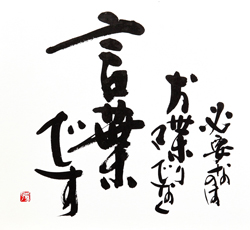 必要なのは
お葉りでなく
言葉です